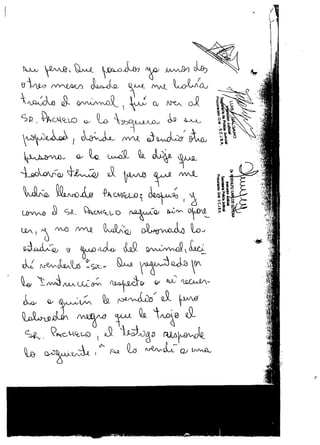 su perro. Que pasados ya unos dos
o tres meses desde que me había
traído el animal, fuí a ver al
SR. PACHELO a la tosquera de su
propiedad, donde me atendió otra
persona a la cual le dije que
todavía tenía el perro que me
había llevado PACHELO; después, y
como el SR. PACHELO seguía sin apare
cer, y no me había abonado la
estadía o guarda del animal, deci
dí venderlo "Sic". Que preguntado por
la Instrucción respecto a si recuer-
da a quién le vendió el perro
labrador negro que le trajo el
SR. PACHELO, el testigo responde
lo siguiente, "se lo vendí a una